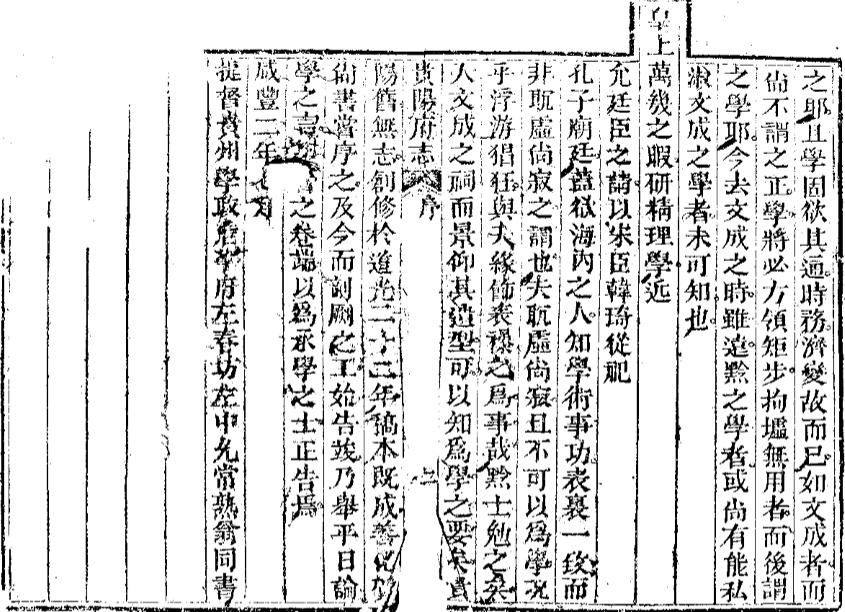 之耶且學固欲其適時務濟變故而已如文成者而
尚不謂之正學將必方領矩步拘墟無用者而後謂
之學耶今去文成之時雖遠黔之學者或尚有能私
淑文成之學者未可知也
皇上萬幾之暇研精理學近
允廷臣之請以宋臣韓琦從祀
孔子廟廷蓋欲海內之人知學術事功表裏一致而
非耽虛尚寂之謂也夫耽虛尚寂且不可以爲學況
乎浮游猖狂與夫緣飾表襮之爲事哉黔士勉之矣
入文成之祠而景仰其造型可以知爲學之要矣貴
貴陽府志 序 二
陽舊無志創修於道光二十二年稿本既成善化賀
尚書嘗序之及今而剞劂之工始告竣乃舉平日論
學之言書之卷端以爲承學之士正告焉
咸豐二年
提督貴州學政詹事府左春坊左中允常熟翁同書